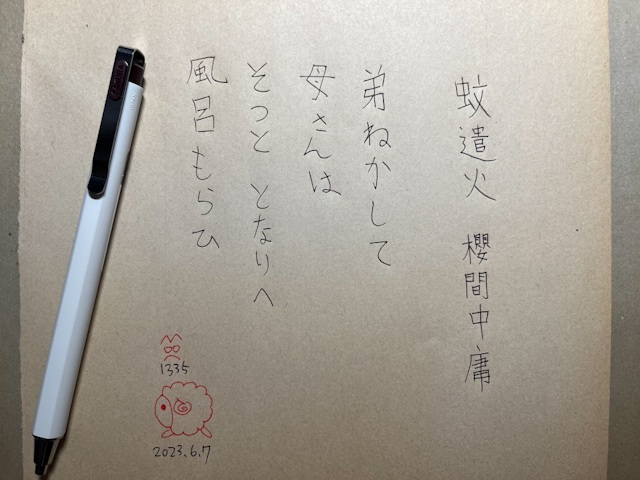 蚊遣火 櫻間中庸
弟ねかして
母さんは
そつと となりへ
風呂もらひ
1335
2023.6.7